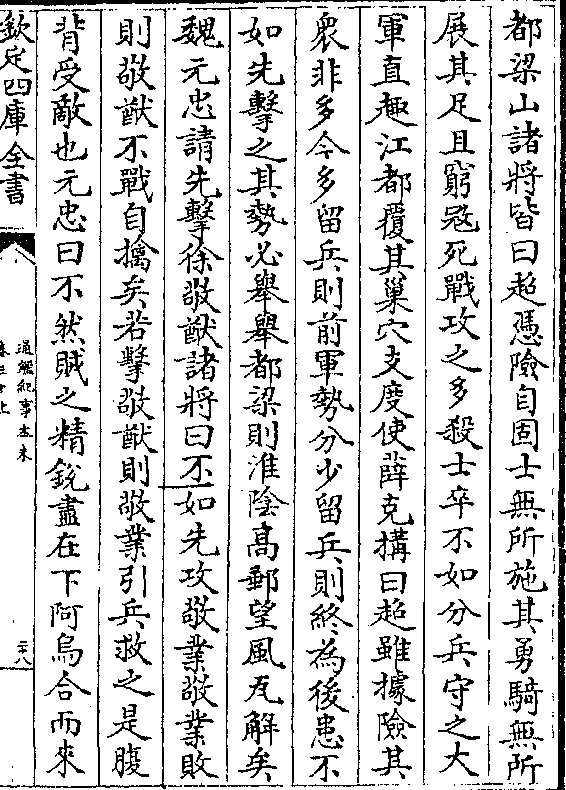 都梁山諸將皆曰超憑險自固士無所施其勇騎無所
展其足且窮寇死戰攻之多殺士卒不如分兵守之大
軍直趣江都覆其巢穴支度使薛克搆曰超雖據險其
衆非多今多留兵則前軍勢分少留兵則終為後患不
如先擊之其勢必舉舉都梁則淮陰髙郵望風瓦解矣
魏元忠請先擊徐敬猷諸將曰不如先攻敬業敬業敗
則敬猷不戰自擒矣若擊敬猷則敬業引兵救之是腹
背受敵也元忠曰不然賊之精銳盡在下阿烏合而來
欽定四庫全書
通鑑紀事本末
卷三十上
二十八